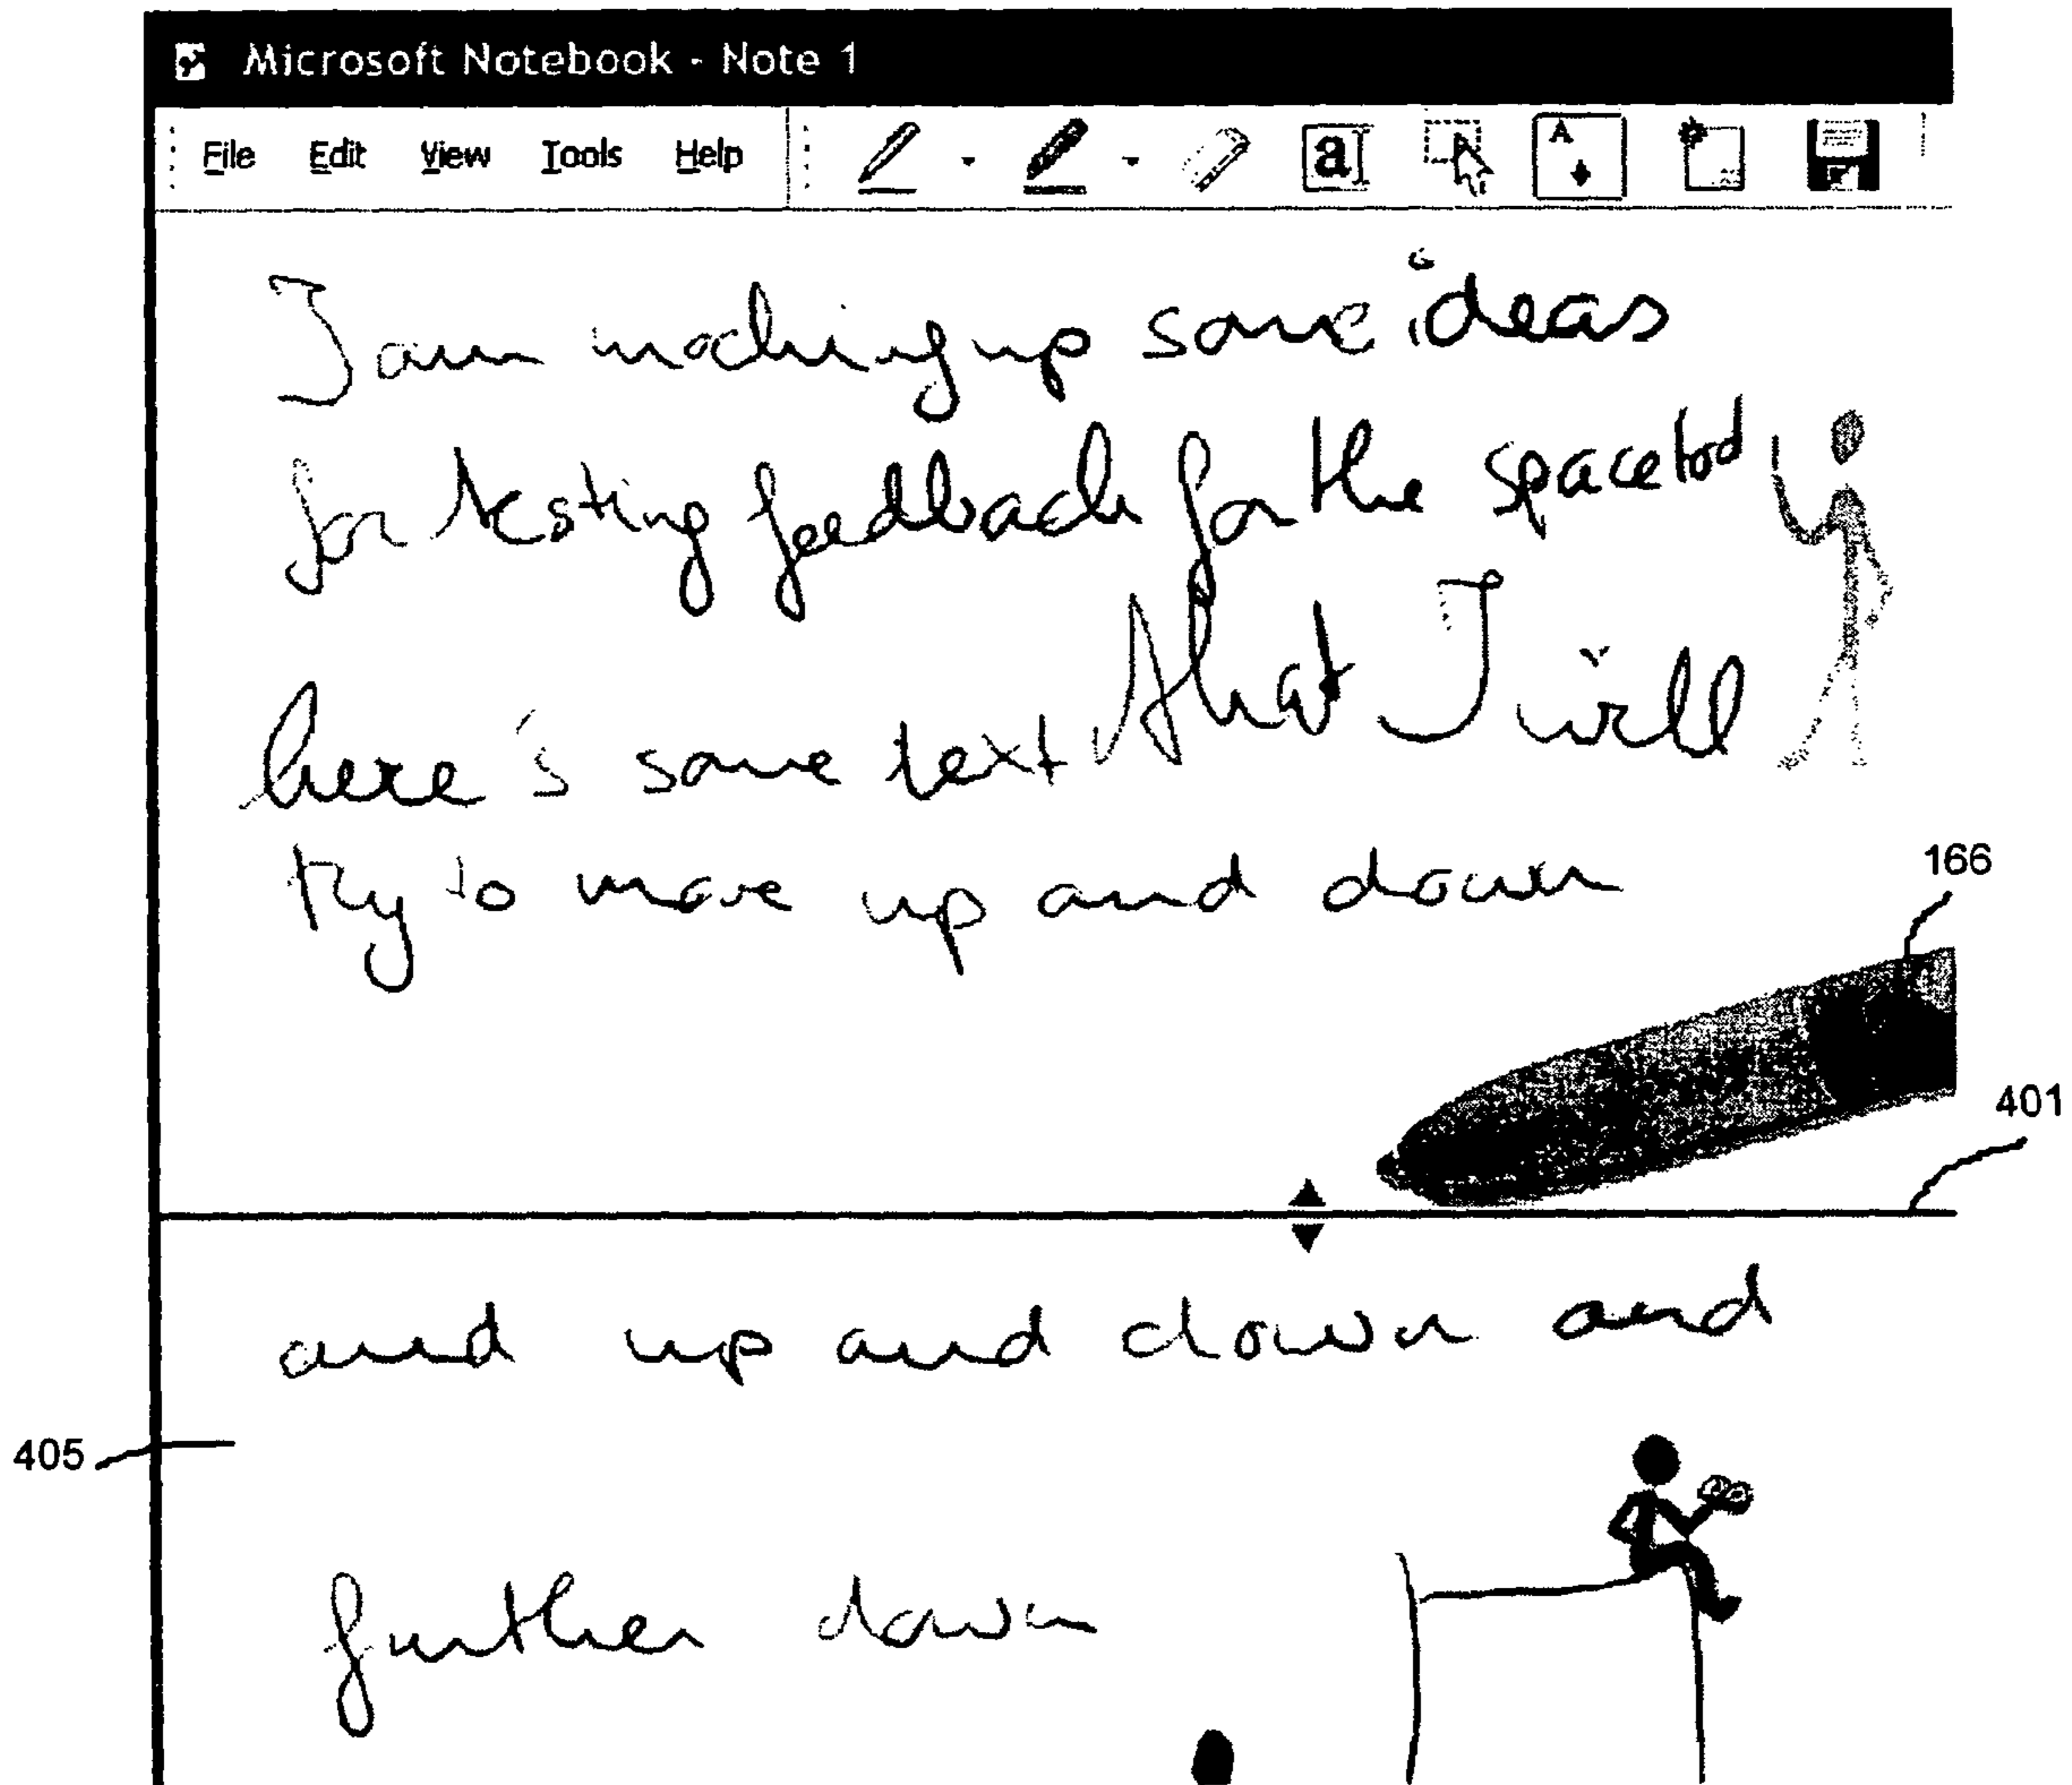 Microsoft Notebook - Note 1
File Edit View Tools Help a A
I am mocking up some ideas
for testing feedback for the spacetool
here's some text that I will
try to move up and down
166
401
and up and down and
405
further down